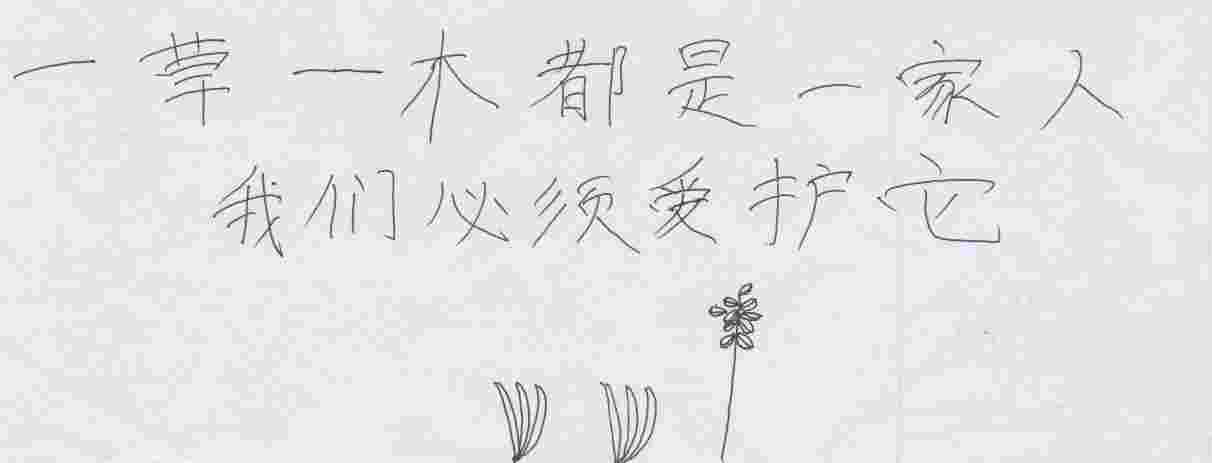 一草一木都是一家人
我们必须爱护它